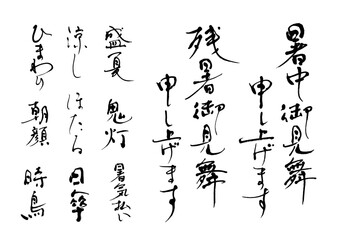 暑中御見舞
申し上げます
残暑御見舞
申し上げます
盛夏 鬼灯 暑気払い
涼し ほたる 日傘
ひまわり 朝顔 時鳥